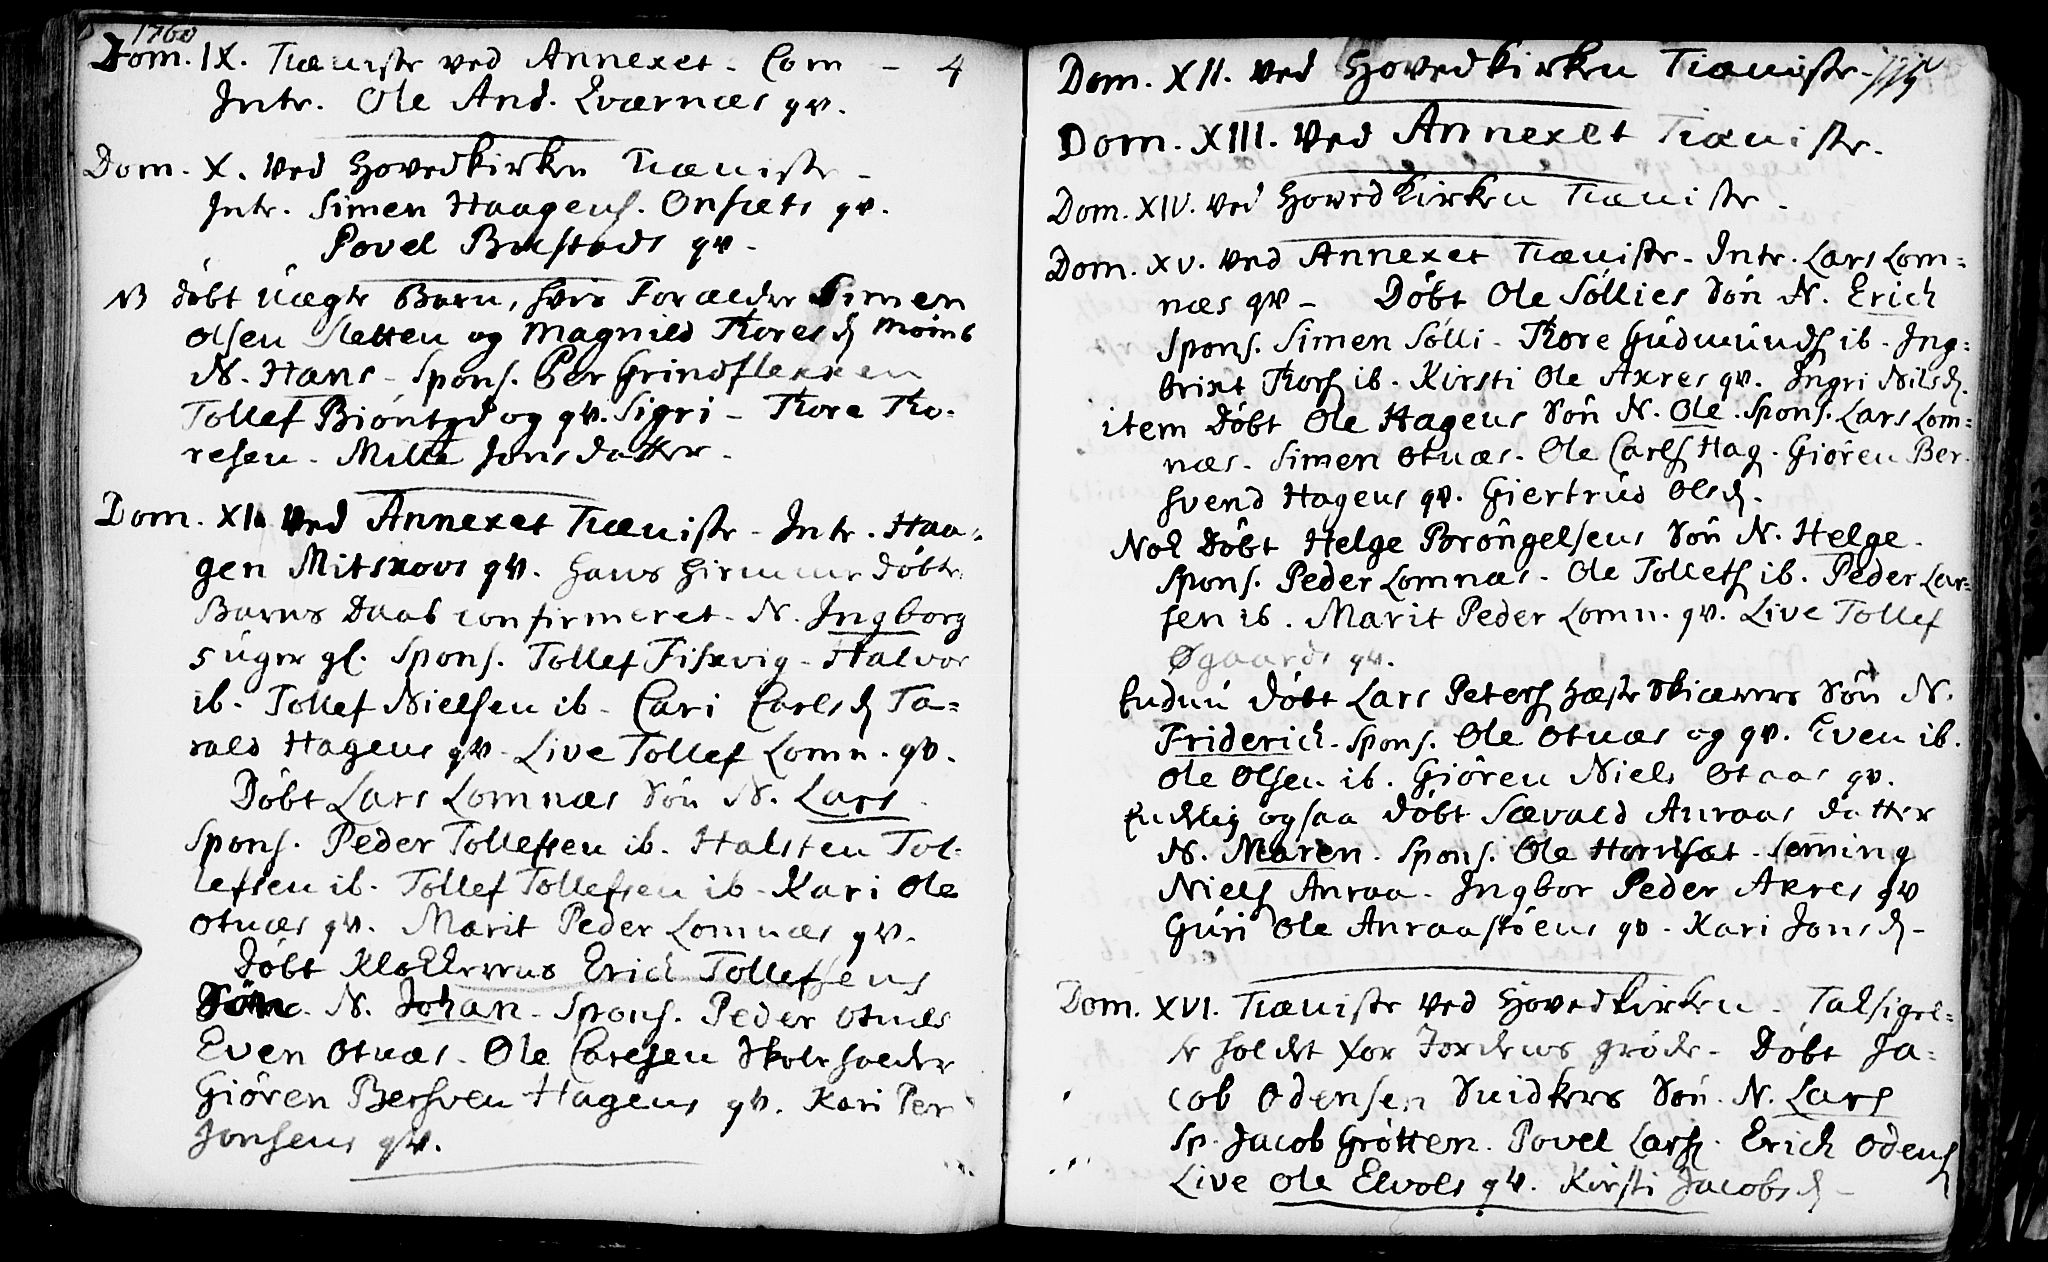 1760
Dom. IX. Tieniste ved Annexet - Com - 4
Intr. Ole And. Qværnæs qv.
Dom. X. ved Hovedkirken Tieniste -
Intr. Simen Haagens. Onsæts qv.
Povel Bulstads qv -
NB døbt Uægte Barn, hvis Forældre Simen
Olsen Sletten og Magnild Thores d Momb
N. Hans - Spons. Per Grindflekken
Tollef Bióntgd og qv. Sigri - Thore Tho-
resen - Mille Jonsdatter -
Dom. XI. ved Annexet Tieniste - Intr. Haa-
gen Mitskovs qv. hans hiemme døbte
Barns Daab confirmeret - N. Ingborg
5 uger gl. Spons. Tollef Fiskvig - Halvor
ib - Tollef Nielsen ib - Cari Carls d Ta=
rald Hagens qv - Live Tollef Lomn. qv.
Døbt Lars Lomnæs Søn N. Lars
Spons. Peder Tollefsen ib. Halsten Tol-
lefsen ib - Tollef Tollefsen ib - Kari Ole
Otnæs qv. Marit Peder Lomnæs qv.
Døbt Klokkerens Erich Tollefsens
Søn - N. Johan - Spons. Peder Otnæs
Even Otnæs - Ole Carlsen Skoleholder
Giøren Bersven Hagens qv. Kari Per
Jonsens qv.
Dom. XII. ved Hovedkirken Tieniste -
Dom. XIII. ved Annexet Tieniste.
Dom. XIV. ved Hovedkirken Tieniste -
Dom. XV. ved Annexet Tieniste - Intr. Lars Lom=
næs qv - Døbt Ole Sóllies Søn N. Erich
Spons. Simen Sólli - Thore Gúdmúnds ib - Ing=
brikt Thors ib - Kirsti Ole Akres qv. Ingri Nilsd.
item Døbt Ole Hagens Søn N. Ole. Spons. Lars Lom=
næs - Simen Otnæs - Ole Carls Hag - Giøren Ber-
svend Hagens qv. Giertrúd Olsd.
Nok Døbt Helge Brøngelsens Søn N. Helge -
Spons. Peder Lomnæs - Ole Tollefs ib. Peder Lar=
sen ib. Marit Peder Lomn. qv. Live Tollef
Øgaards qv.
Endnú døbt Lars Peters Hæste Skiærers Søn N.
Friderich - Spons. Ole Otnæs og qv. Even ib.
Ole Olsen ib. Giøren Niels Otnæs qv.
Endelig ogsaa døbt Sævald Anraas datter
N. Maren - Spons. Ole Hornset - Semming
Niels Anraa - Ingbor Peder Akres qv
Gúri Ole Anraastøens qv - Kari Jons d -
Dom. XVI. Tieniste ved Hovedkirken - Taksigel=
se holdet for Jordens grøde - Døbt Ja=
cob Odensen Snidkers Søn - N. Lars
Sp. Jacob Grøtten. Povel Lars. Erich Odens
Live Ole Elvols qv. Kirsti Jacobs d -